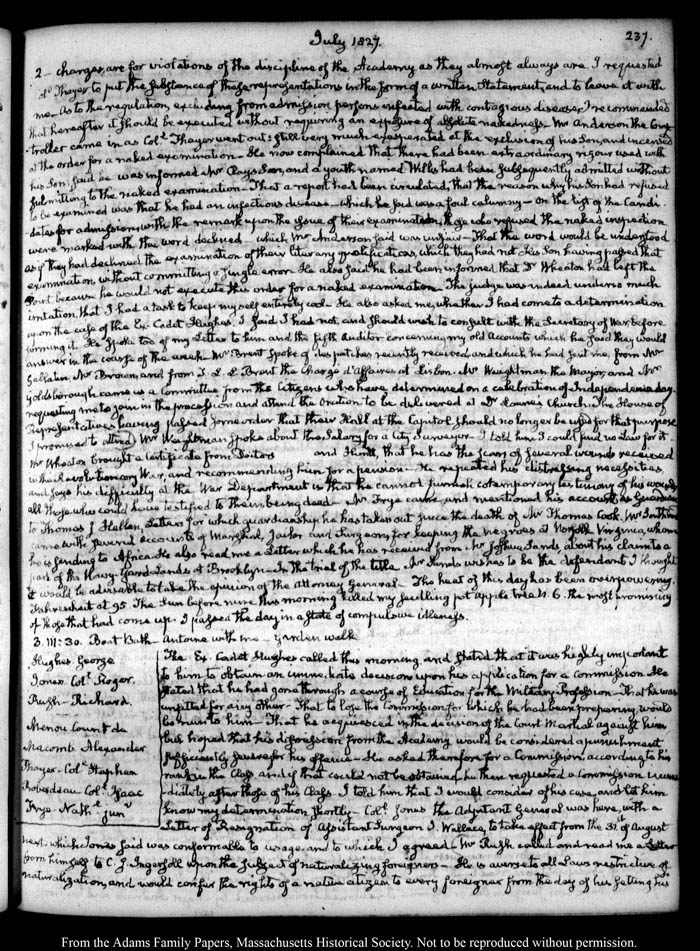 July 1827.
237.
2 charges, are for violations of the discipline of the Academy as they almost always are. I requested
Col. Thayer to put the substance of these representations in the form of a written Statement, and to leave it with
me. As to the regulation, excluding from admission persons infected with contagious disease, I recommended
that hereafter it should be executed without requiring an exposure of absolute nakedness. Mr Anderson the Comp-
troller came in as Colt. Thayer went out; still very much exasperated at the exclusion of his Son, and incensed
at the order for a naked examination. He now complained that there had been extraordinary rigour used with
his Son; said he was informed Mr Clay's Son, and a youth named Wilks had been subsequently admitted without
submitting to the naked examination. That a report had been circulated, that the reason why his Son had refused
to be examined was that he had an infectious disease which he said was a foul calumny. on the list of the Candi-
dates for admission, with the remark upon the issue of their examination, those who refused the naked inspection
were marked with the word declined which Mr Anderson said was unfair. That the word would be understood
as if they had declined the examination of their literary qualifications, which they had not. His Son having passed that
examination without committing a single error. He also said he had been informed that Dr Wheaton had left the
Post because he would not execute this order for a naked examination. The judge was indeed under so much
irritation, that I had a task to keep myself entirely cool. He also asked me, whether I had come to a determination
upon the case of the Ex-Cadet Hughes. I said I had not, and should wish to consult with the Secretary of War, before
forming it. He spoke too of my Letter to him and the fifth Auditor concerning my old Accounts which he said they would
answer in the course of the week. Mr Brent spoke of despatches recently received and which he had sent me from Mr
Gallatin, Mr Brown, and from T. L. L. Brent the Chargé d'Affaires at Lisbon. Mr Weightman the Mayor, and Mr
Goldsborough came as a Committee from the Citizens who have determined on a celebration of Independence day
requesting me to join in the procession and attend the Oration to be delivered at Dr Laurie's Church. The House of
Representatives having passed some order that their Hall at the Capitol should no longer be used for that purpose
I promised to attend. Mr Weightman spoke about the Salary for a City Surveyor. I told him I could find no Law for it.
Mr Wheaton brought a certificate from Doctors and Hunt, that he has the scars of several wounds received
in the Revolutionary War, and recommending him for a pension. He repeated his distressing necessities,
and says his difficulty at the War Department is that he cannot furnish cotemporary testimony of his wounds
all those who could have testified to them being dead. Mr Frye came, and mentioned his account as Guardian
to Thomas J Hellen Letters for which guardianship he has taken out since the death of Mr Thomas Cook. Mr Southard
came with several accounts of Marshal, Jailor and Surgeons for keeping the negroes at Norfolk Virginia, whom
he is sending to Africa. He also read me a Letter which he has received from Mr Joshua Sands, about his claim to a
part of the Navy-Yard Lands at Brooklyn. In the trial of the title Mr Sands wishes to be the defendant. I thought
it would be adviseable to take the opinion of the Attorney General. The heat of this day has been overpowering.
Fahrenheit at 95. The sun before nine this morning killed my seedling pot apple tree N. 6. the most promising
of those that had come up. I passed the day in a state of compulsive idleness.
3. III: 30. Boat Bath Antoine with me Garden walk
Hughes George
Jones Colt. Roger.
Rush Richard.
Menou Count de
Macomb Alexander
Thayer Colt Stephen
Roberdeau Colt. Isaac
Frye Nathl Junr
The Ex-Cadet Hughes called this morning, and stated that it was highly important
to him to obtain an immediate decision upon his application for a commission. He
stated that he had gone through a course of Education for the Military profession. That he was
unfitted for any other. That to lose the Commission for which he had been preparing would
be ruin to him. That he acquiesced in the decision of the Court Martial against him
but hoped that his dismission from the Academy would be considered a punishment
sufficiently severe for his offence. He asked therefore for a Commission, according to his
rank in the Class and if that could not be obtained, he then requested a Commission imme-
diately after those of his Class. I told him that I would consider of his case, and let him
know my determination shortly. Colt. Jones the Adjutant General was here, with a
Letter of Resignation of Assistant Surgeon I. Wallace, to take effect from the 31st of August
next, which Jones said was conformable to usage, and to which I agreed. Mr Rush called and read me a Letter
from himself to C. J. Ingersoll upon the subject of naturalizing foreigners. He is averse to all Laws restrictive of
naturalization, and would confer the rights of a native citizen to every foreigner from the day of his setting his
From the Adams Family Papers, Massachusetts Historical Society. Not to be reproduced without permission.